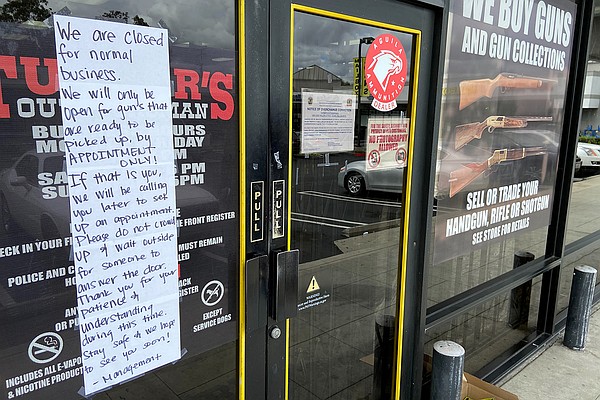 We are closed
for normal
business.
We will only be
open for guns that
are ready to be
picked up, by
APPOINTMENT
ONLY!
If that is you,
we will be calling
you later to set
up an appointment.
Please do not crowd
up & wait outside
for someone to
answer the door.
Thank you for your
patience &
understanding
during this time.
Stay safe & we hope
to see you soon!
- Management
TU
ER'S
OU
MAN
BU
URS
MO
DAY
SA
PM
SU
PM
FRONT REGISTER
ECK IN YOUR FI
MUST REMAIN
POLICE AND C
HO
REGISTER
AN
OR PU
EXCEPT
SERVICE DOGS
INCLUDES ALL E-VAPO
& NICOTINE PRODUCT
PULL
PULL
AGUILA
AMMUNITION
DEALER
WE BUY GUNS
AND GUN COLLECTIONS
SELL OR TRADE YOUR
HANDGUN, RIFLE OR SHOTGUN
SEE STORE FOR DETAILS